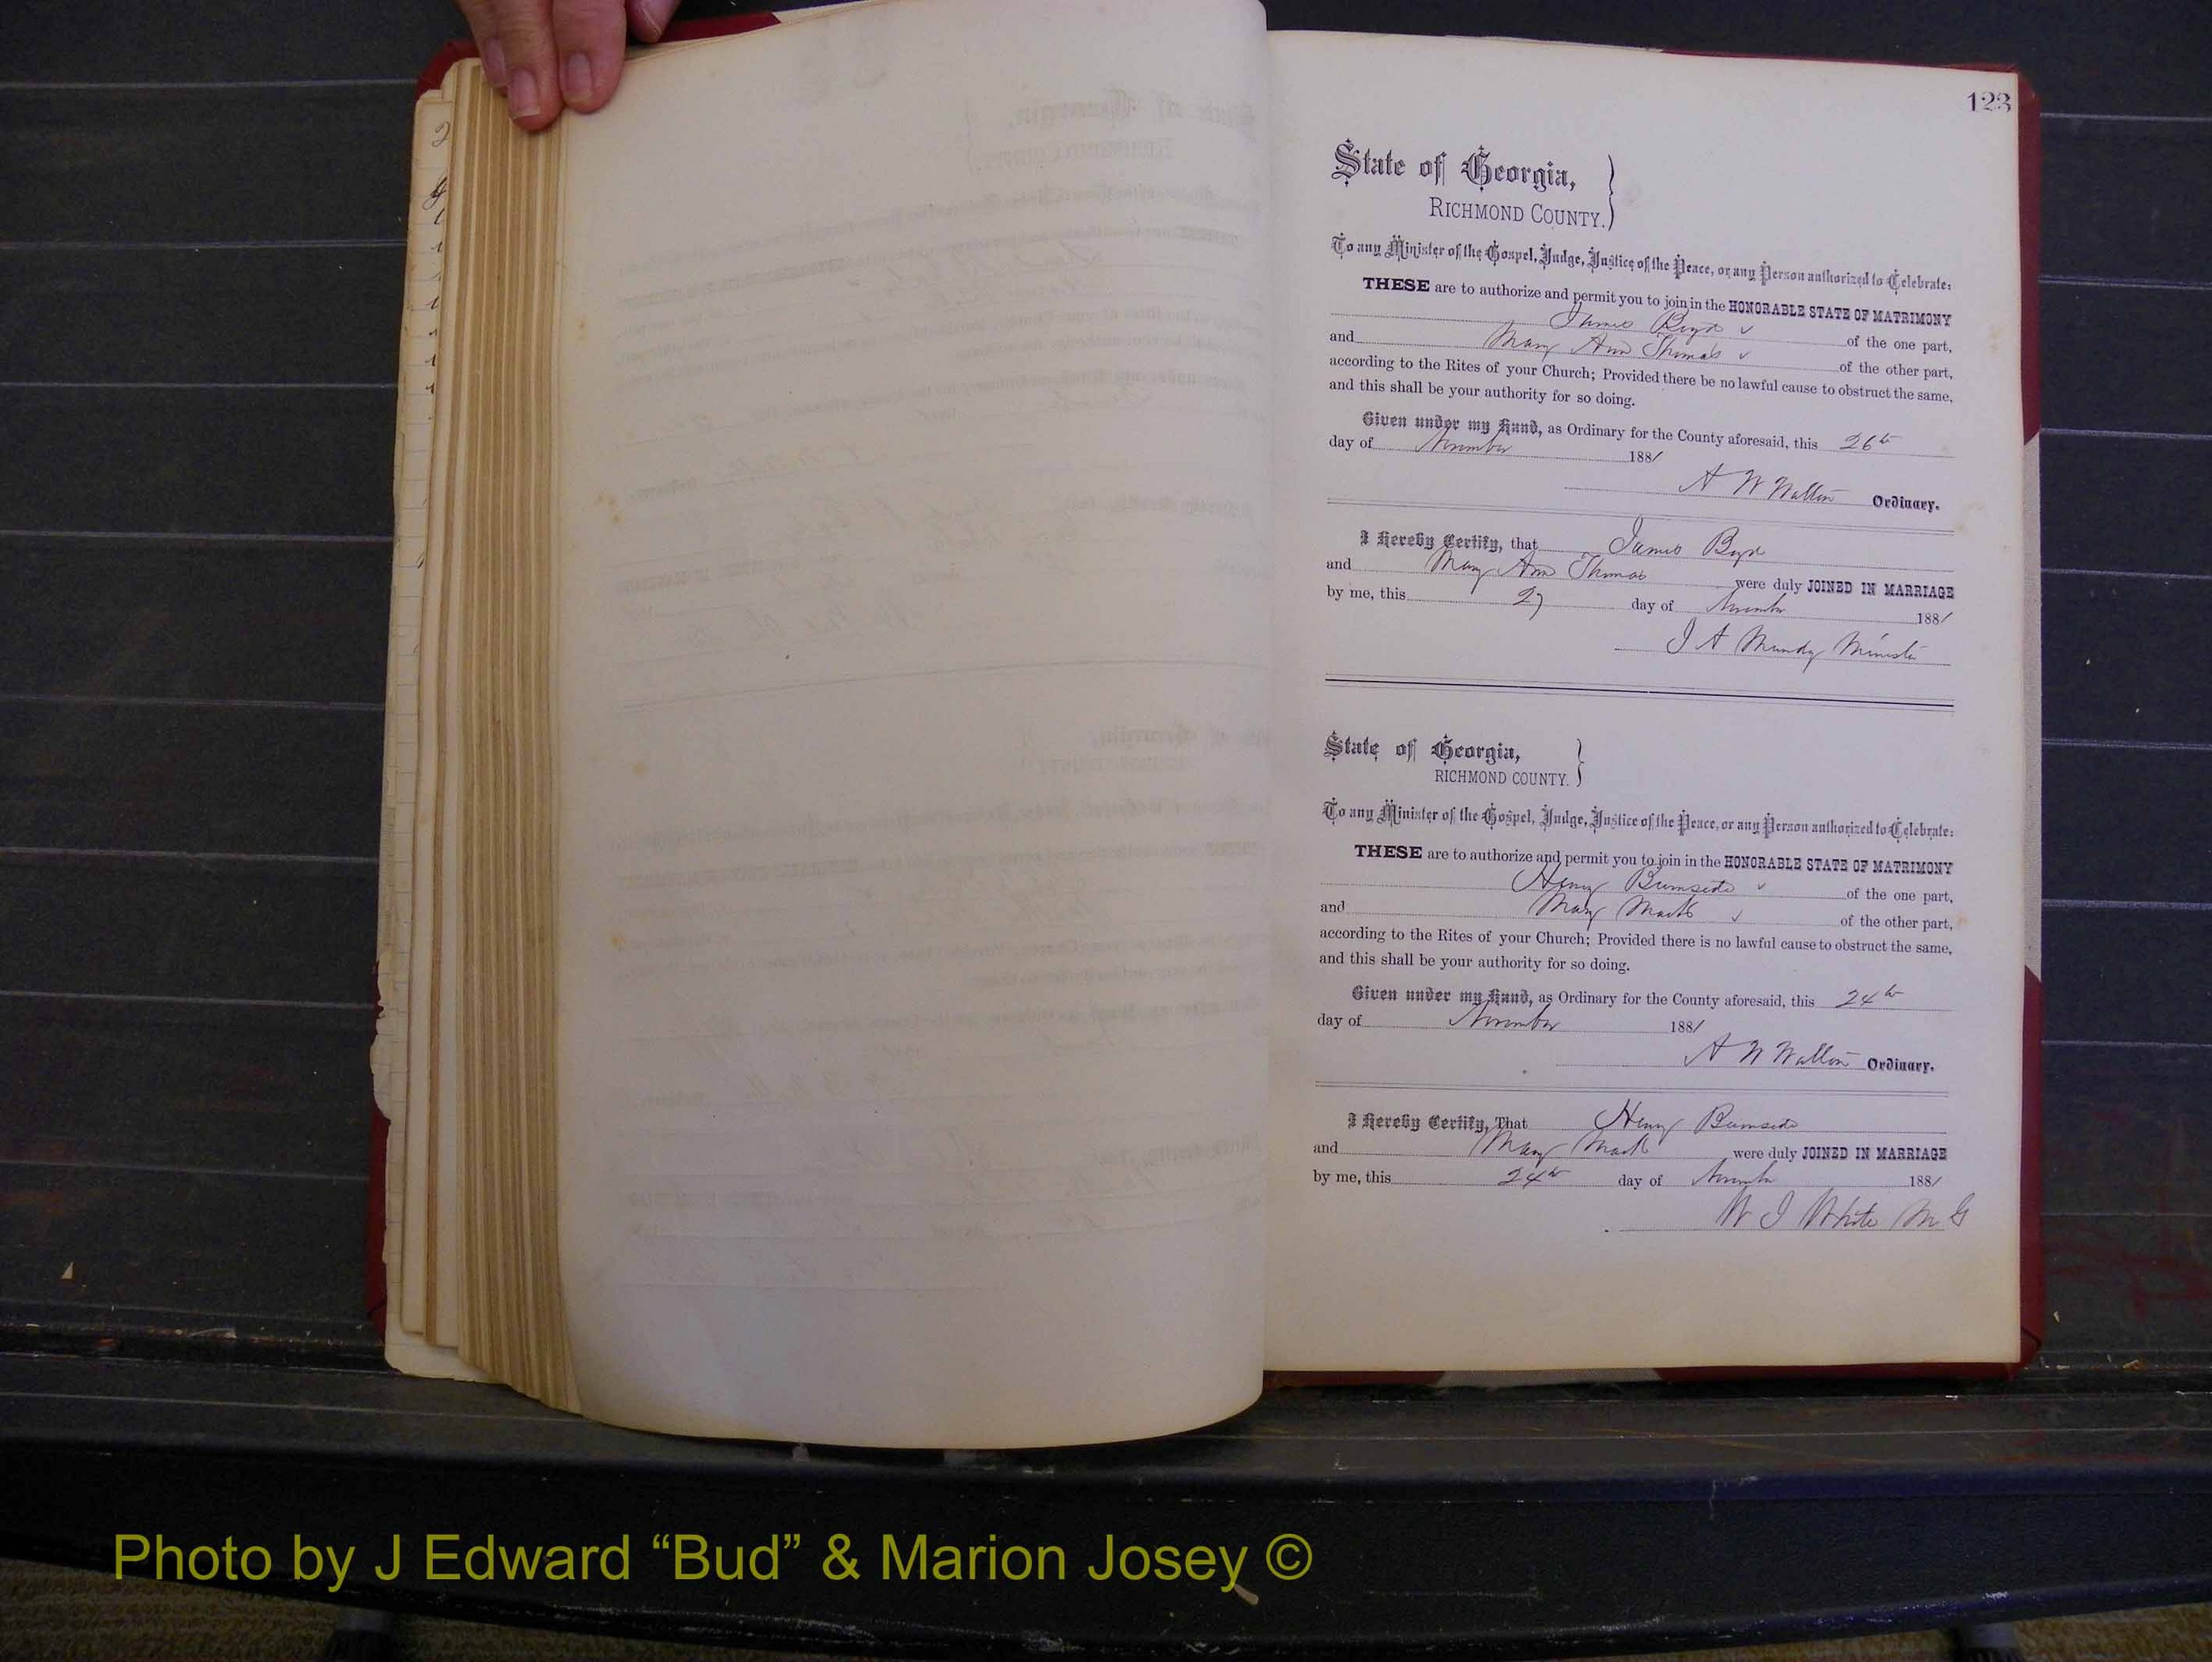 123
State of Georgia,
RICHMOND COUNTY.
To any Minister of the Gospel, Judge, Justice of the Peace, or any Person authorized to Celebrate:
THESE are to authorize and permit you to join in the HONORABLE STATE OF MATRIMONY
James Boyd of the one part,
and Mary Ann Thomas of the other part,
according to the Rites of your Church; Provided there be no lawful cause to obstruct the same,
and this shall be your authority for so doing.
Given under my Hand, as Ordinary for the County aforesaid, this 26th
day of November 1881
A W Walton Ordinary.
I Hereby Certify, that James Boyd
and Mary Ann Thomas were duly JOINED IN MARRIAGE
by me, this 27 day of November 1881
J A Mundy Minister
State of Georgia,
RICHMOND COUNTY.
To any Minister of the Gospel, Judge, Justice of the Peace, or any Person authorized to Celebrate:
THESE are to authorize and permit you to join in the HONORABLE STATE OF MATRIMONY
Henry Burnside of the one part,
and Mary Mack of the other part,
according to the Rites of your Church; Provided there is no lawful cause to obstruct the same,
and this shall be your authority for so doing.
Given under my Hand, as Ordinary for the County aforesaid, this 24th
day of November 1881
A W Walton Ordinary.
I Hereby Certify, That Henry Burnside
and Mary Mack were duly JOINED IN MARRIAGE
by me, this 24th day of November 1881
W J White M G
Photo by J Edward “Bud” & Marion Josey ©